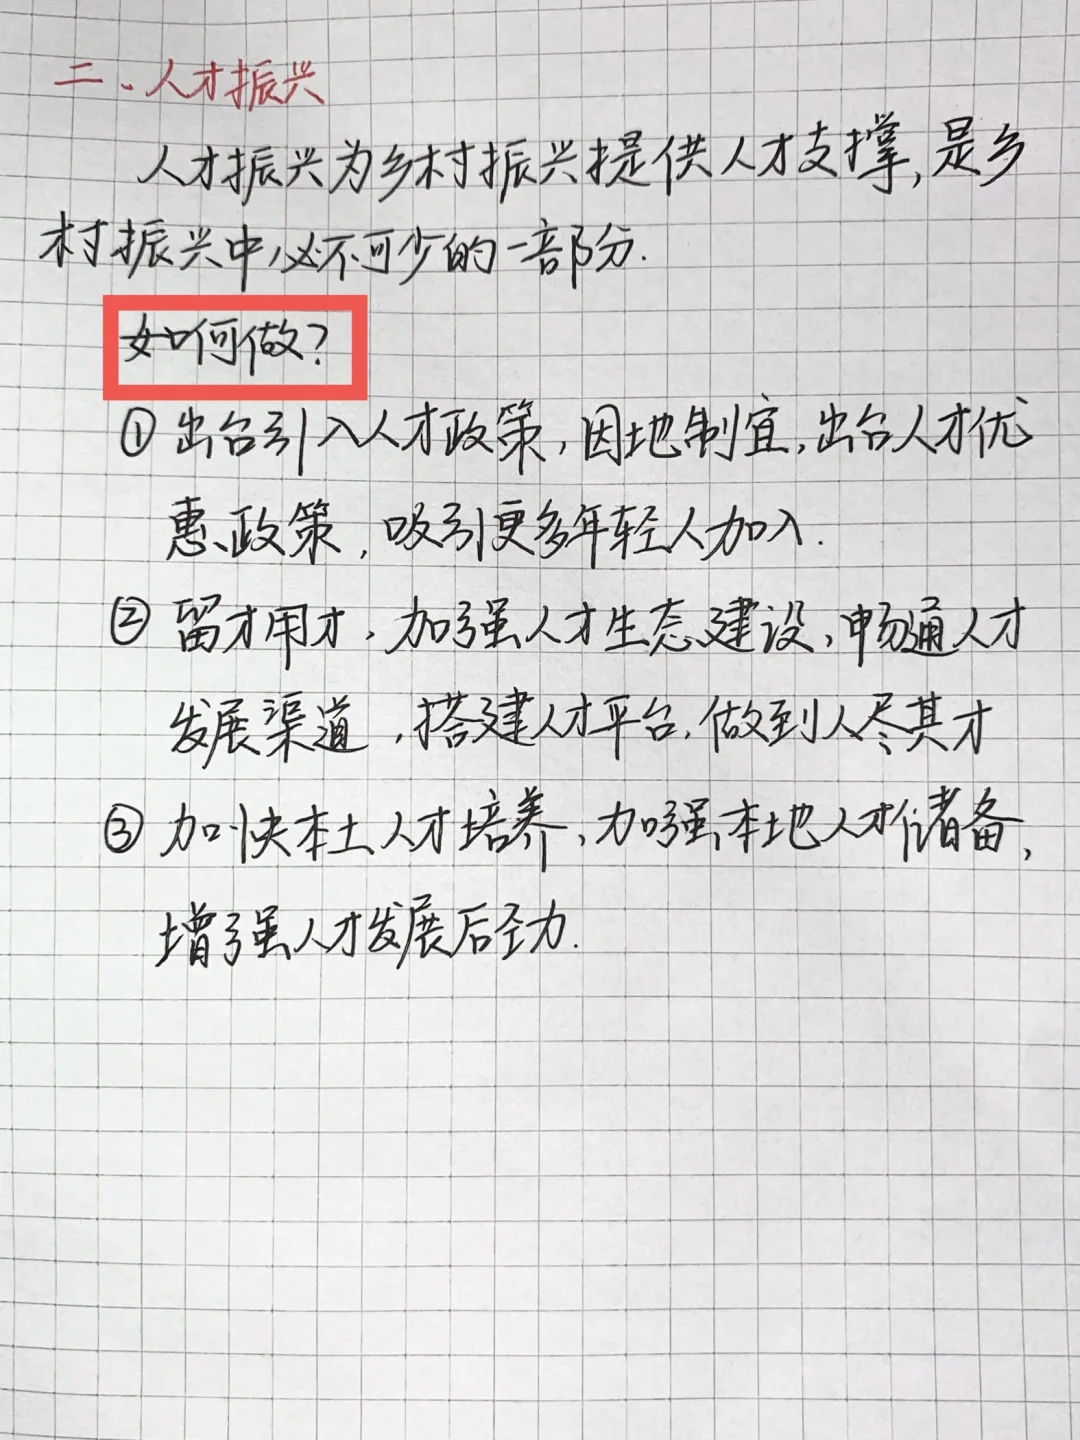 二、人才振兴
人才振兴为乡村振兴提供人才支撑,是乡
村振兴中必不可少的一部分.
如何做?
① 出台引入人才政策,因地制宜,出台人才优
惠政策,吸引更多年轻人加入.
② 留才用才,加强人才生态建设,畅通人才
发展渠道,搭建人才平台,做到人尽其才
③ 加快本土人才培养,加强本地人才储备,
增强人才发展后劲力.